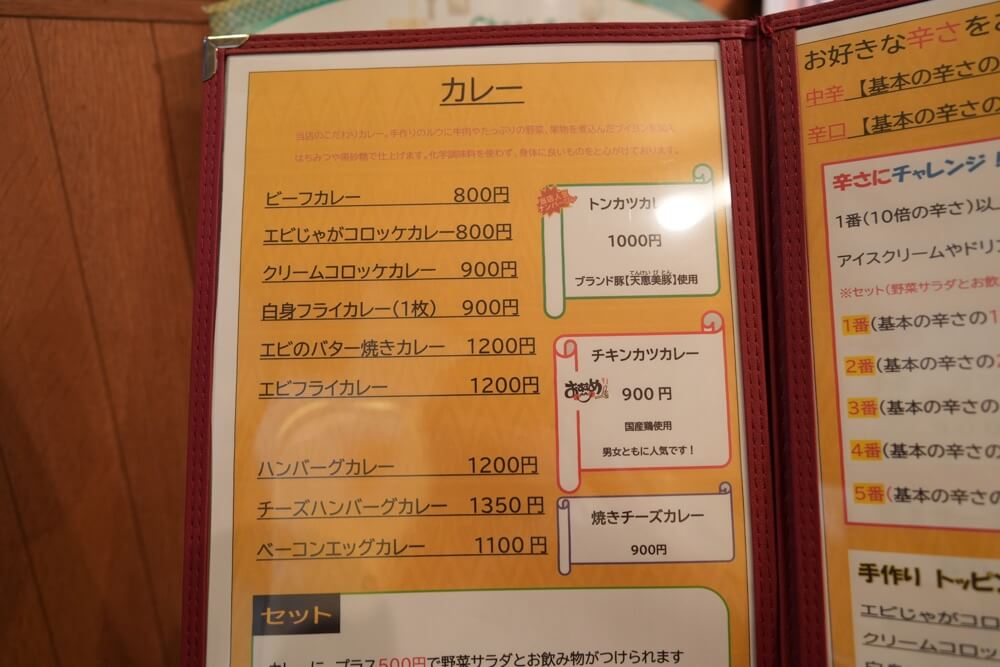 カレー
当店のこだわりカレー。手作りのルウに牛肉やたっぷりの野菜、果物を煮込んだブイヨンを加え
はちみつや黒砂糖で仕上げます。化学調味料を使わず、身体に良いものをと心がけております。
ビーフカレー 800円
エビじゃがコロッケカレー 800円
クリームコロッケカレー 900円
白身フライカレー(1枚) 900円
エビのバター焼きカレー 1200円
エビフライカレー 1200円
ハンバーグカレー 1200円
チーズハンバーグカレー 1350円
ベーコンエッグカレー 1100円
トンカツカレ
1000円
てんけい び とん
ブランド豚【天恵美豚】使用
チキンカツカレー
おすすめ
900円
国産鶏使用
男女ともに人気です!
焼きチーズカレー
900円
セット
カレーに、プラス500円で野菜サラダとお飲み物がつけられます
お好きな辛さを
中辛【基本の辛さの
辛口【基本の辛さの
辛さにチャレンジ!
1番(10倍の辛さ)以
アイスクリームやドリ
※セット(野菜サラダとお飲
1番(基本の辛さの1
2番(基本の辛さの
3番(基本の辛さの
4番(基本の辛さの
5番(基本の辛さの
手作り トッピン
エビじゃがコロ
クリームコロッ